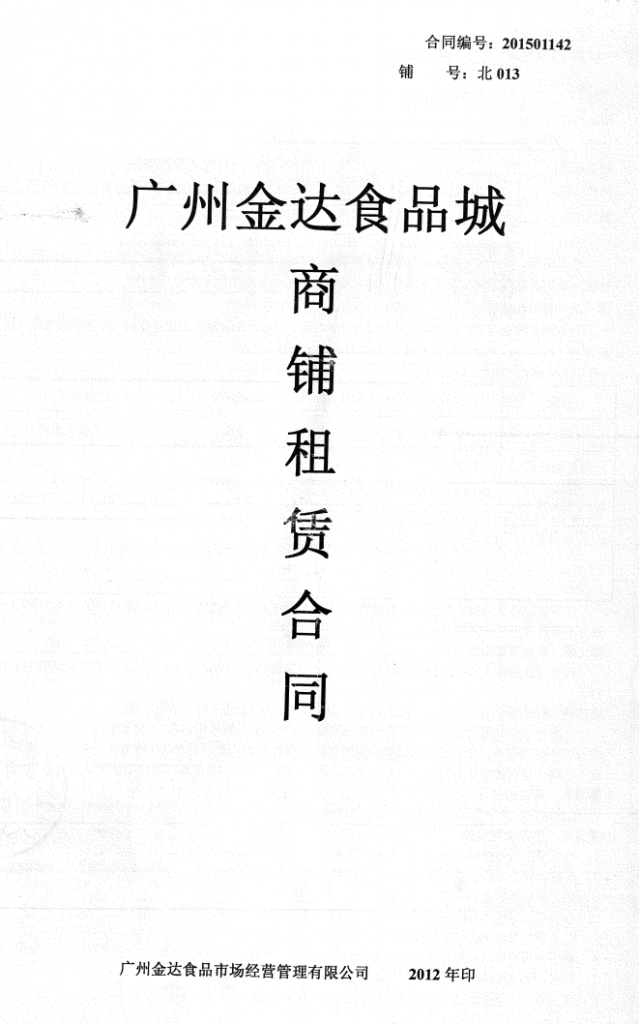 合同编号：201501142
铺 号：北 013
广州金达食品城
商
铺
租
赁
合
同
广州金达食品市场经营管理有限公司 2012 年印